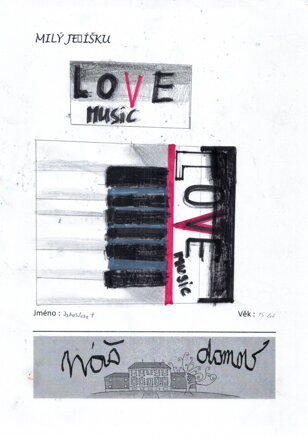 MILÝ JEŽÍŠKU
LOVE
MUSIC
LOVE
music
Jméno :
Věk : 15 let
náš domov